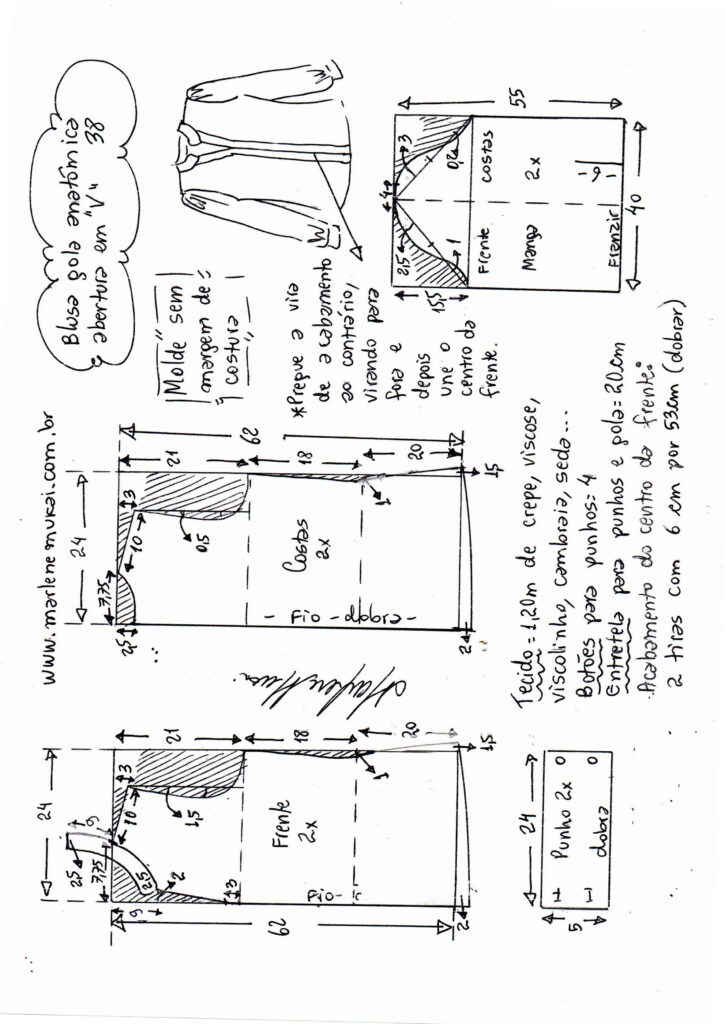 Blusa gola anatômica
abertura em "V" 38
www.marlenemukai.com.br
Molde sem
margem de
costura
*Pregue a vira
de acabamento
ao contrário,
virando para
fora e
depois
une o
centro da
frente.
24
7,75
2,5
6
10
3
21
1,5
2,5
2
6
3
62
Frente
2x
Fio
18
1
20
1,5
2
24
7,75
2,5
10
3
21
0,5
62
Costas
2x
- Fio - dobra -
18
1
20
1,5
2
4
2,5
3
1
0,2
15,5
55
Frente
costas
Manga
2x
-9-
Franzir
40
24
Punho 2x
dobra
5
Tecido = 1,20m de crepe, viscose,
viscolinho, cambraia, seda...
Botões para punhos = 4
Entretela para punhos e gola = 20cm
Acabamento do centro da frente:
2 tiras com 6 cm por 53cm (dobrar)